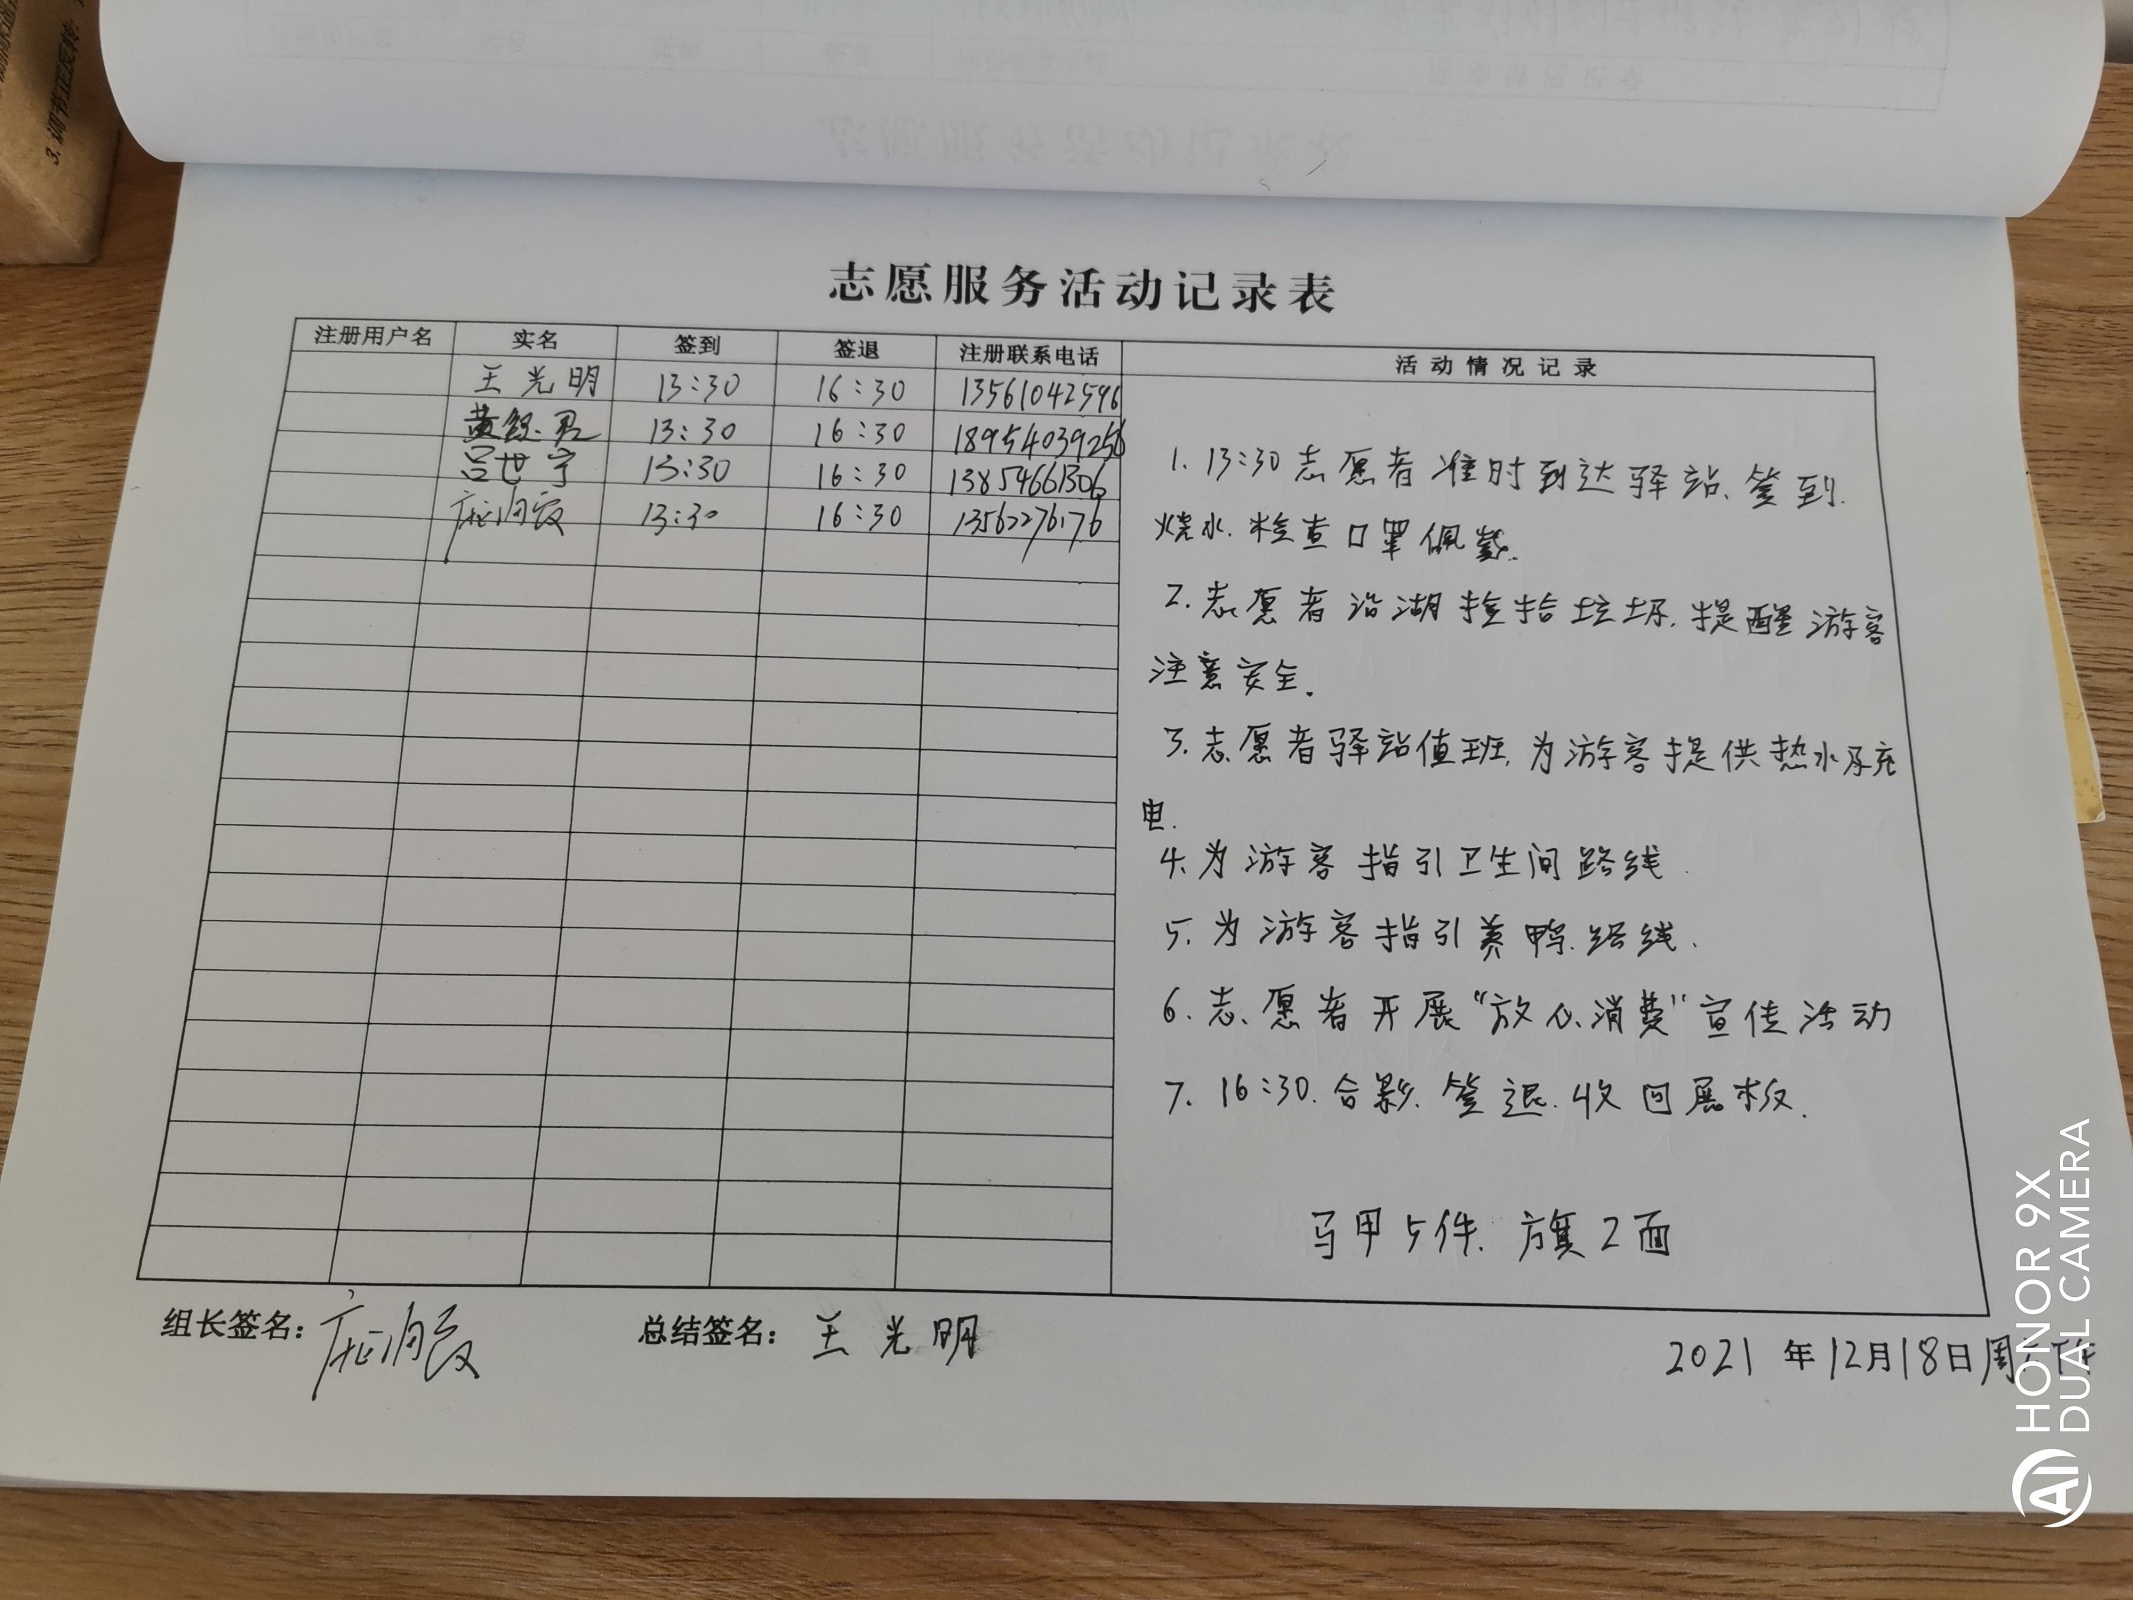 3. 调节正反转:
志愿服务活动记录表
注册用户名 实名 签到 签退 注册联系电话 活动情况记录
王光明 13:30 16:30 13561042596
13:30 16:30 18954039256
吕世宁 13:30 16:30 13854661306
13:30 16:30
1. 13:30志愿者准时到达驿站、签到.
烧水.检查口罩佩戴.
2. 志愿者沿湖捡拾垃圾.提醒游客
注意安全.
3. 志愿者驿站值班,为游客提供热水及充
电.
4. 为游客指引卫生间路线.
5. 为游客指引养鸭路线.
6. 志愿者开展“放心消费”宣传活动
7. 16:30.合影.签退.收回展板.
马甲5件. 旗2面
组长签名: 总结签名: 王光明
2021年12月18日周
HONOR 9X
DUAL CAMERA
AI